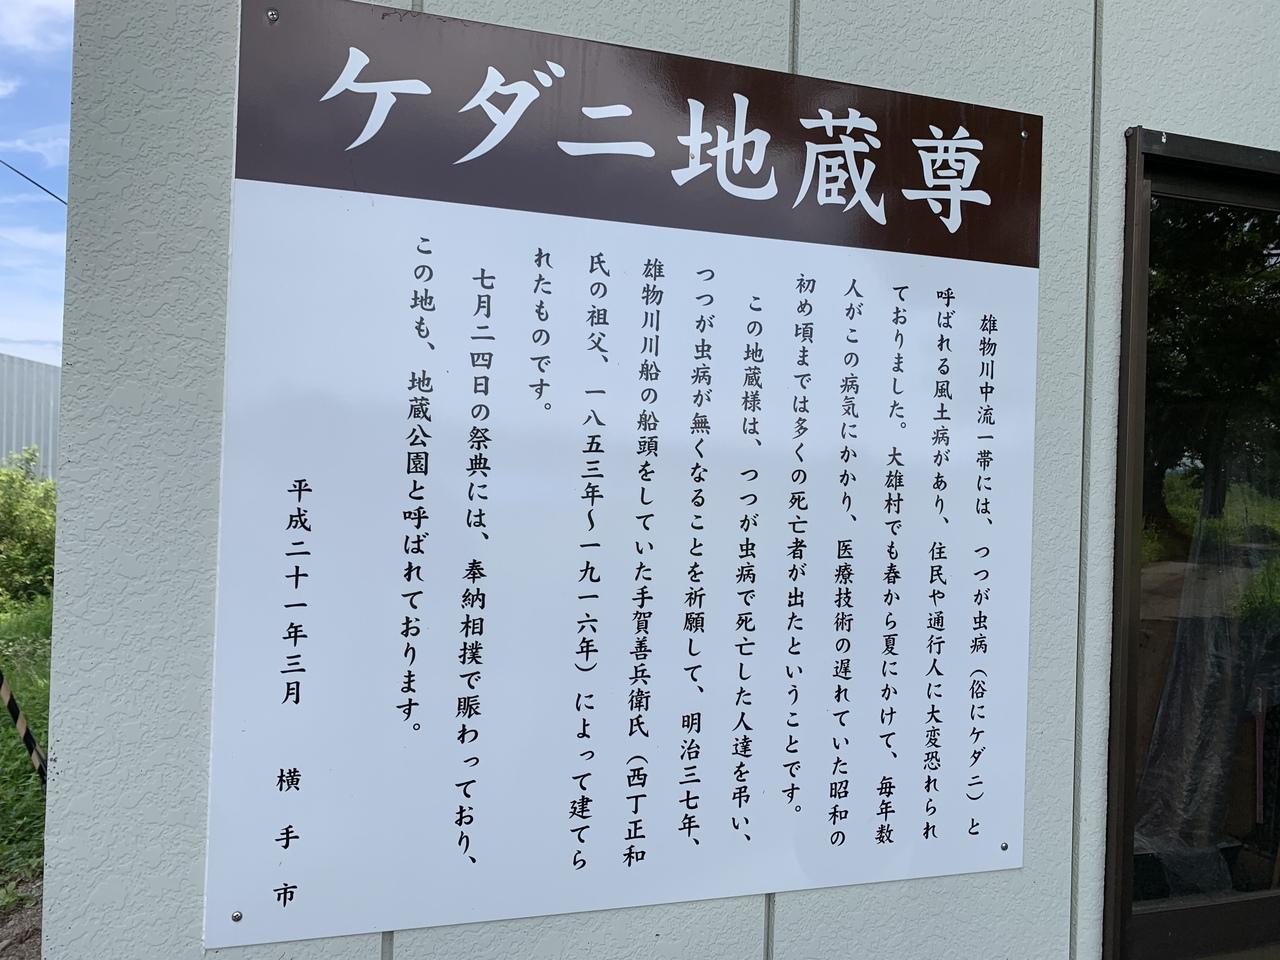 ケダニ地蔵尊
雄物川中流一帯には、つつが虫病（俗にケダニ）と
呼ばれる風土病があり、住民や通行人に大変恐れられ
ておりました。大雄村でも春から夏にかけて、毎年数
人がこの病気にかかり、医療技術の遅れていた昭和の
初め頃までは多くの死亡者が出たということです。
この地蔵様は、つつが虫病で死亡した人達を弔い、
つつが虫病が無くなることを祈願して、明治三七年、
雄物川川船の船頭をしていた手賀善兵衛氏（西丁正和
氏の祖父、一八五三年～一九一六年）によって建てら
れたものです。
七月二四日の祭典には、奉納相撲で賑わっており、
この地も、地蔵公園と呼ばれております。
平成二十一年三月　横手市